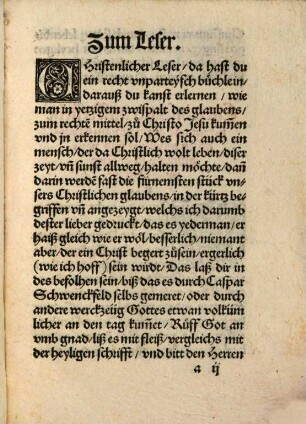 Zum Leser.
CHristenlicher Leser / da hast du
ein recht vnparteysch büchlein /
darauß du kanst erlernen / wie
man in yetzigem zwispalt des glaubens /
zum rechtẽ mittel / zů Christo Jesu kum̃en
vnd jn erkennen sol / Wes sich auch ein
mensch / der da Christlich wolt leben / diser
zeyt / vñ sunst allweg / halten möchte / dañ
darin werdẽ fast die fürnemsten stück vn
sers Christlichen glaubens / in der kürtz be
griffen vñ angezeygt / welchs ich darumb
dester lieber gedruckt / das es yederman / er
haiß gleich wie er wöl / besserlich / niemant
aber / der ein Christ begert zůsein / ergerlich
(wie ich hoff) sein wirdt / Das laß dir in
des befolhen sein / biß das es durch Caspar
Schwenckfeld selbs gemeret / oder durch
andere werckzeüg Gottes etwan volküm
licher an den tag kum̃et / Rüff Got an
vmb gnad / liß es mit fleiß / vergleichs mit
der heyligen schrifft / vnd bitt den Herren
a ij